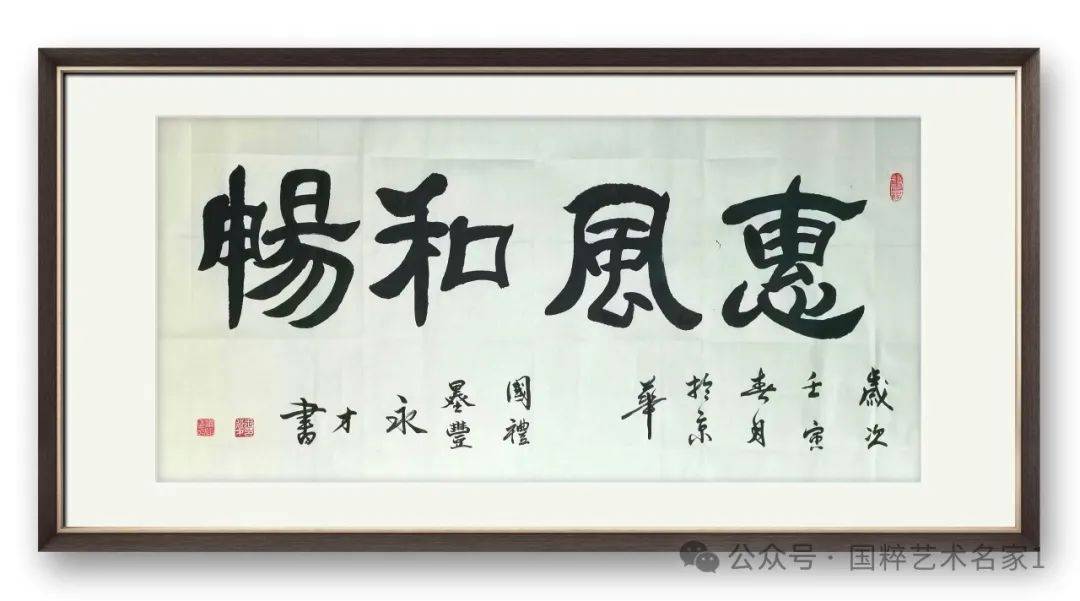 惠風和暢
歲次
壬寅
春月
於京
華
國禮
豐
永
才
書
公众号 · 国粹艺术名家1